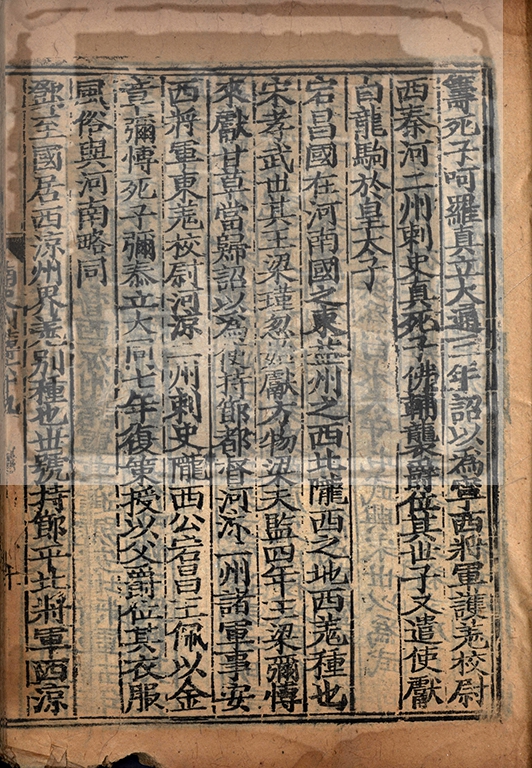 籌死子呵羅真立大通三年詔以為寧西將軍護羗校尉
西秦河二州刺史真死子佛輔襲爵位其世子又遣使獻
白龍駒於皇太子
宕昌國在河南國之東益州之西北隴西之地西羗種也
宋孝武世其王梁瑾忽始獻方物梁天監四年王梁彌博
來獻甘草當歸詔以為使持節都督河涼二州諸軍事安
西將軍東羗校尉河涼二州刺史隴西公宕昌王佩以金
章彌博死子彌泰立大同七年復策授以父爵位其衣服
風俗與河南略同
鄧至國居西涼州界羗別種也世號持節平北將軍西涼